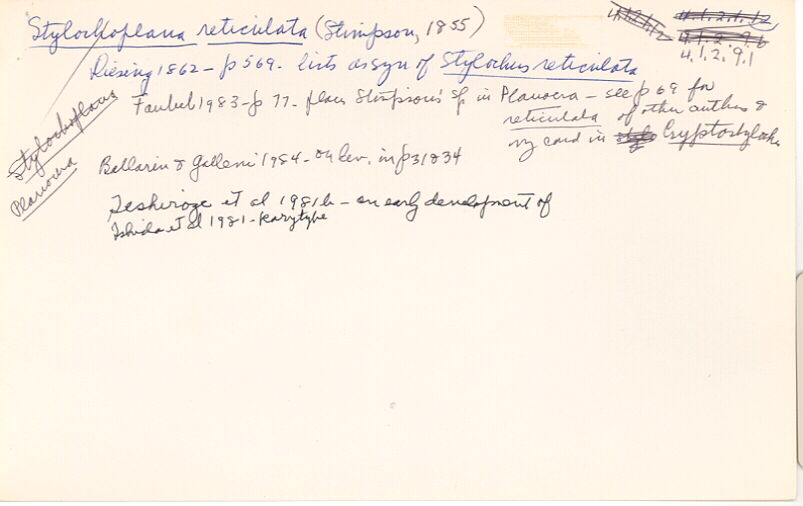 Stylochoplana reticulata (Stimpson, 1855)
4.1.2.9.1
Diesing 1862 - p 569. lists as syn of Stylochus reticulata
Faubel 1983 - p 77. places Stimpson's sp in Planocera - see p 69 for
reticulata of other authors &
my card in Cryptostylochus
Stylochoplana
Planocera
Bellarin & Galleni 1984 - in p 31 & 34
Teshirogi et al 1981b - on early development of
Ishida et al 1981 - karyotype